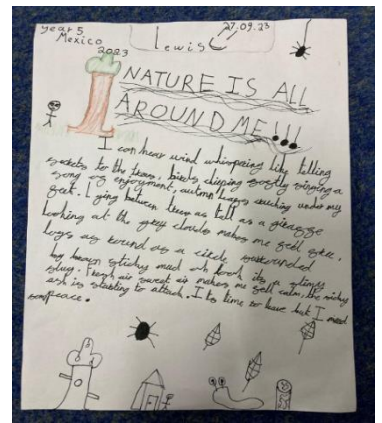 year 5
Mexico
2023
Lewis
27.09.23
NATURE IS ALL
AROUND ME!!!
I can hear wind whispering like telling
to the trees, birds chirping softly singing a
song of enjoyment, autumn leaves under my
feet. I ying between trees as tall as a giraffe
looking at the grey clouds makes me feel
logs as round as a circle surrounded
by brown sticky mud oh look its a slimy
slug. Fresh air sweet air makes me feel calm, the
ash is starting to attack. I ts time to leave but I need
peace.